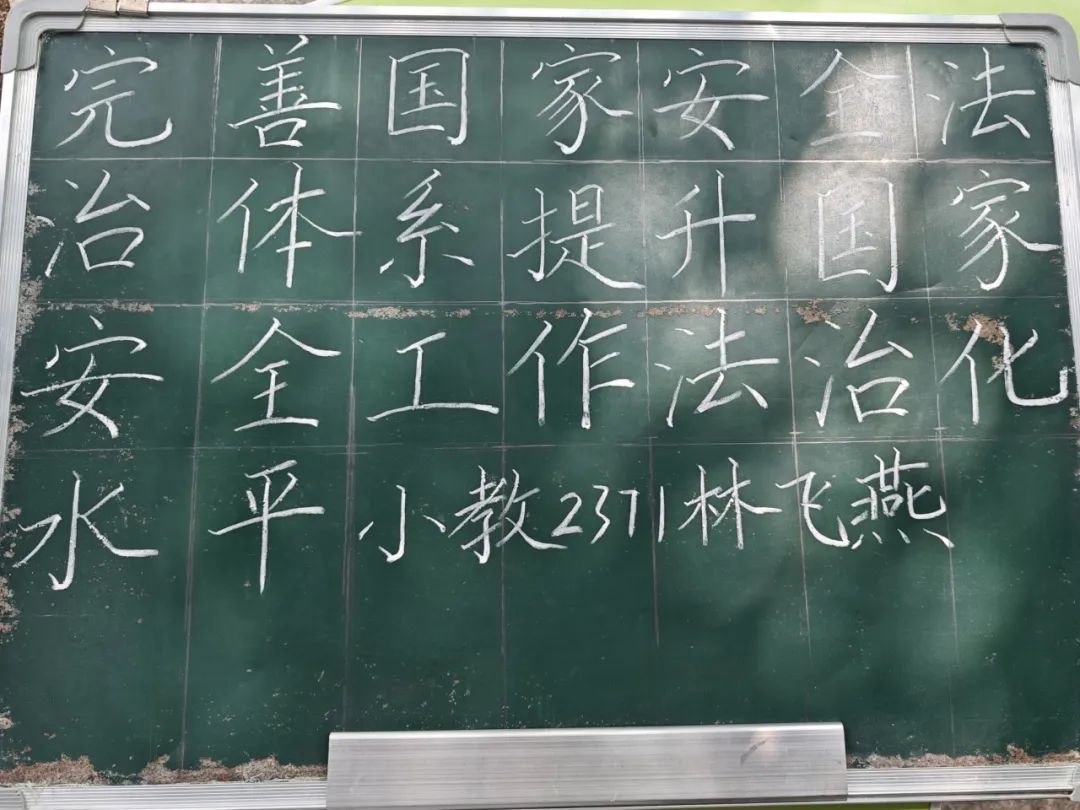 完善国家安全法
治体系提升国家
安全工作法治化
水平小教2371林飞燕